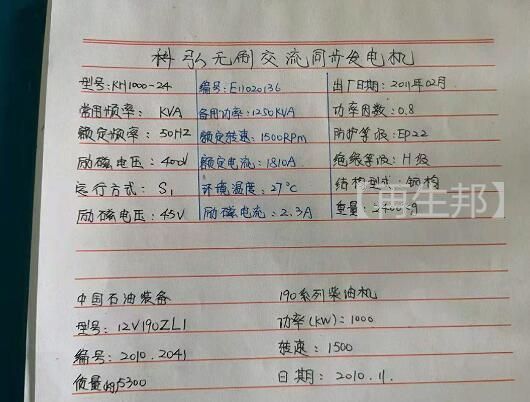 科弘无刷交流同步发电机
型号：KH1000-24 编号：E11020136 出厂日期：2011年02月
常用频率： KVA 备用功率：1250KVA 功率因数：0.8
额定频率：50HZ 额定转速：1500RPM 防护等级：EP22
励磁电压：400V 额定电流：1810A 绝缘等级：H级
运行方式：S1 环境温度：27℃ 结构型式：钢构
励磁电压：45V 励磁电流：2.3A 重量：2400kg
【再生邦】
中国石油装备 190系列柴油机
型号：12V190ZL1 功率(KW)：1000
编号：2010.2041 转速：1500
质量(kg)5300 日期：2010.11.